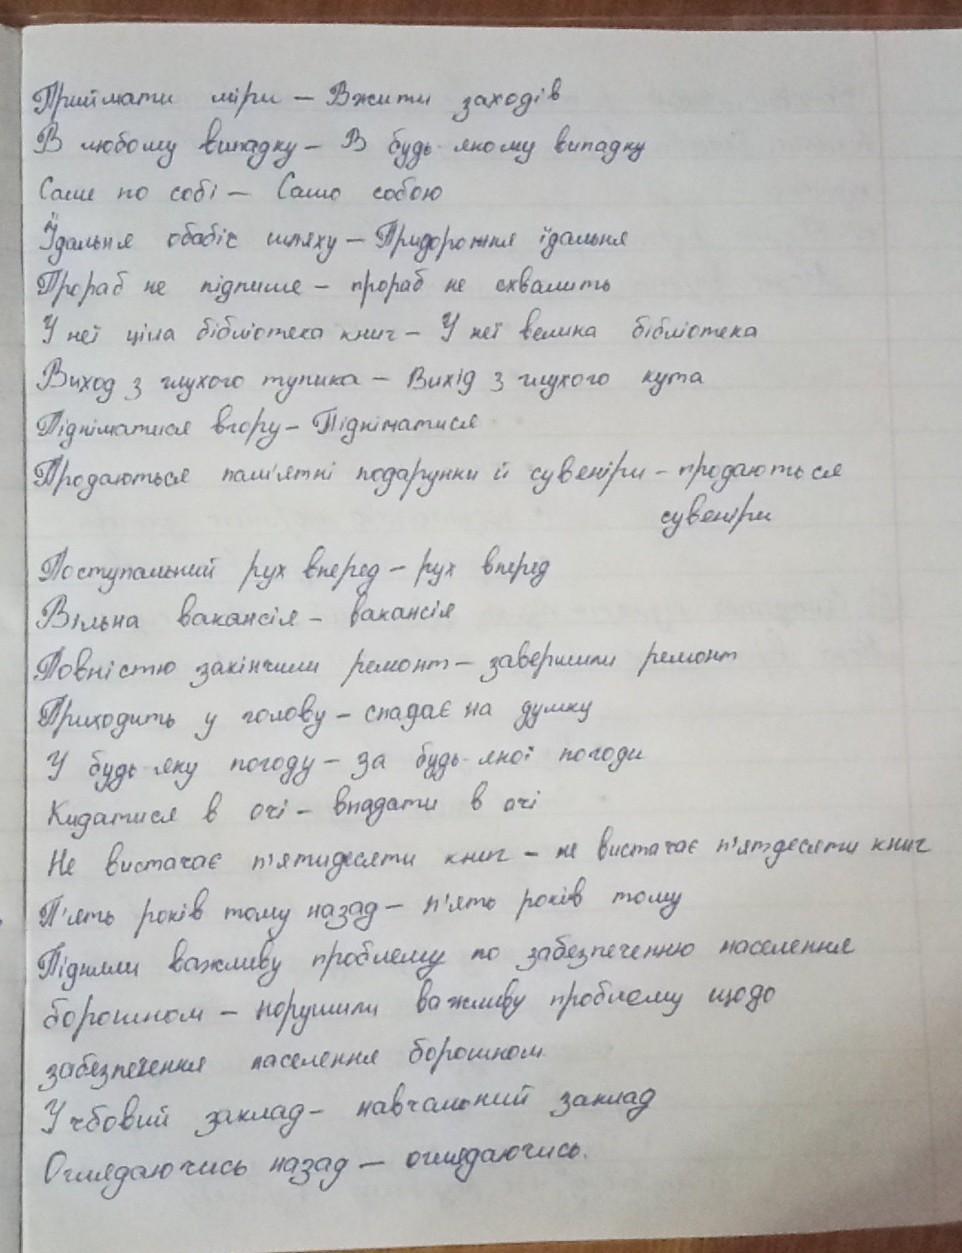 Приймати міри – Вжити заходів
В любому випадку – В будь-якому випадку
Саме по собі – Само собою
Їдальня обабіч шляху – Придорожня їдальня
Прораб не підпише – прораб не схвалить
У неї ціла бібліотека книг – У неї велика бібліотека
Виход з глухого тупика – Вихід з глухого кута
Підніматися вгору – Підніматися
Продаються пам'ятні подарунки й сувеніри – продаються
сувеніри
Поступальний рух вперед – рух вперед
Вільна вакансія – вакансія
Повністю закінчили ремонт – завершили ремонт
Приходить у голову – спадає на думку
У будь-яку погоду – за будь-якої погоди
Кидатися в очі – впадати в очі
Не вистачає п'ятидесяти книг – не вистачає п'ятдесяти книг
П'ять років тому назад – п'ять років тому
Підняли важливу проблему по забезпеченню населення
борошном – порушили важливу проблему щодо
забезпечення населення борошном.
Учбовий заклад – навчальний заклад
Оглядаючись назад – оглядаючись.